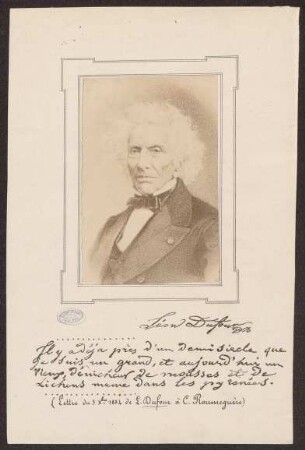 Léon Dufour
Il y a déja près d'un demi siècle que
je suis un grand, et aujourd'hui un
vieux dénicheur de mousses et de
Lichens meme dans les pyrenées.
(Lettre du 3 8bre 1864 de L. Dufour à C. Roumeguère)